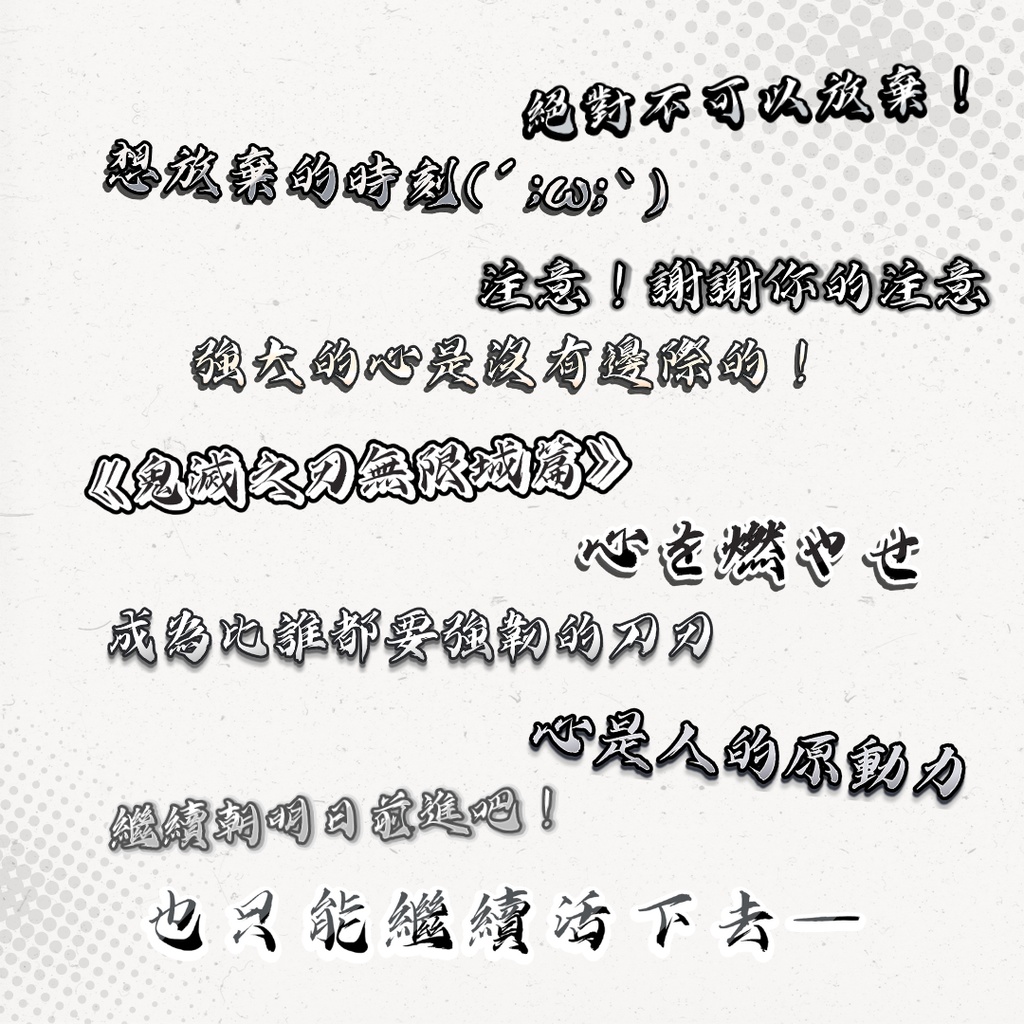 絕對不可以放棄！
想放棄的時刻(´;ω;`)
注意！謝謝你的注意
強大的心是沒有邊際的！
《鬼滅之刃無限城篇》
心を燃やせ
成為比誰都要強韌的刀刃
心是人的原動力
繼續朝明日前進吧！
也只能繼續活下去—